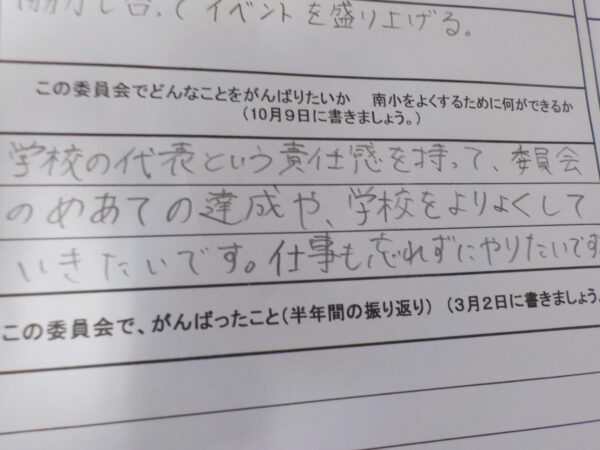 協力し合ってイベントを盛り上げる。
この委員会でどんなことをがんばりたいか 南小をよくするために何ができるか
(10月9日に書きましょう。)
学校の代表という責任感を持って、委員会
のめあての達成や、学校をよりよくして
いきたいです。仕事も忘れずにやりたいです
この委員会で、がんばったこと(半年間の振り返り) (3月2日に書きましょう。